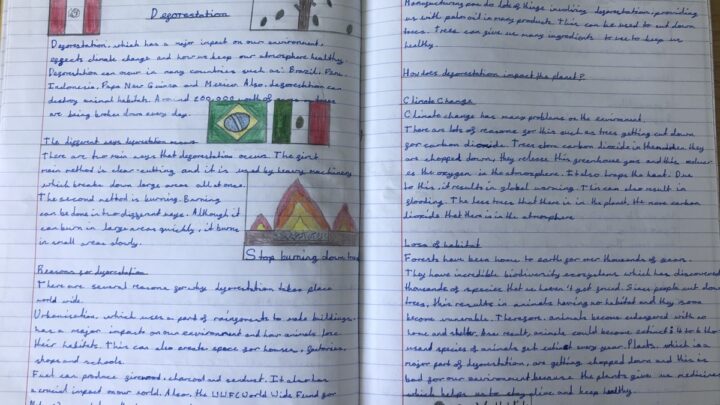 Deforestation
Deforestation, which has a major impact on our environment,
effects climate change and how we keep our atmosphere healthy.
Deforestation can occur in many countries such as: Brazil, Peru,
Indonesia, Papa New Guinea and Mexico. Also, deforestation can
destroy animal habitats. Around 200,000 of
are being broken down every day.
The different ways deforestation occurs
There are two main ways that deforestation occurs. The first
main method is clear-cutting and it is used by heavy machinery
which breaks down large areas all at once.
The second method is burning. Burning
can be done in two different ways. Although it
can burn in large areas quickly, it burns
in small areas slowly.
Stop burning down trees
Reasons for deforestation
There are several reasons for why deforestation takes place
world wide.
Urbanisation, which uses a part of rainforests to make buildings,
has a major impact on our environment and how animals lose
their habitats. This can also create space for houses, factories,
shops and schools.
Fuel can produce firewood, charcoal and sawdust. It also has
a crucial impact on our world. Also, the WWF (World Wide Fund for
Manufacturing can do lots of things involving deforestation, providing
us with palm oil in many products. This can be used to cut down
trees. Trees can give us many ingredients to use to keep us
healthy.
How does deforestation impact the planet?
Climate Change
Climate change has many problems on the enviroment.
There are lots of reasons for this such as trees getting cut down
for carbon dioxide. Trees store carbon dioxide in them when they
are chopped down, they release this greenhouse gas and this reduc-
es the oxygen in the atmosphere. It also traps the heat. Due
to this, it results in global warming. This can also result in
flooding. The less trees that there is in the planet, the more carbon
dioxide that there is in the atmosphere
Loss of habitat
Forests have been home to earth for over thousands of years.
They have incredible biodiversity ecosystems which has discovered
thousands of species that we haven't yet found. Since people cut down
trees, this results in animals having no habitat and they soon
become vunerable. Therefore, animals become endangered with no
home and shelter. As a result, animals could become extinct
species of animals get extinct every year. Plants, which is a
major part of deforestation, are getting chopped down and this is
bad for our environment because the plants give us medicines
which helps us to stay alive and keep healthy.